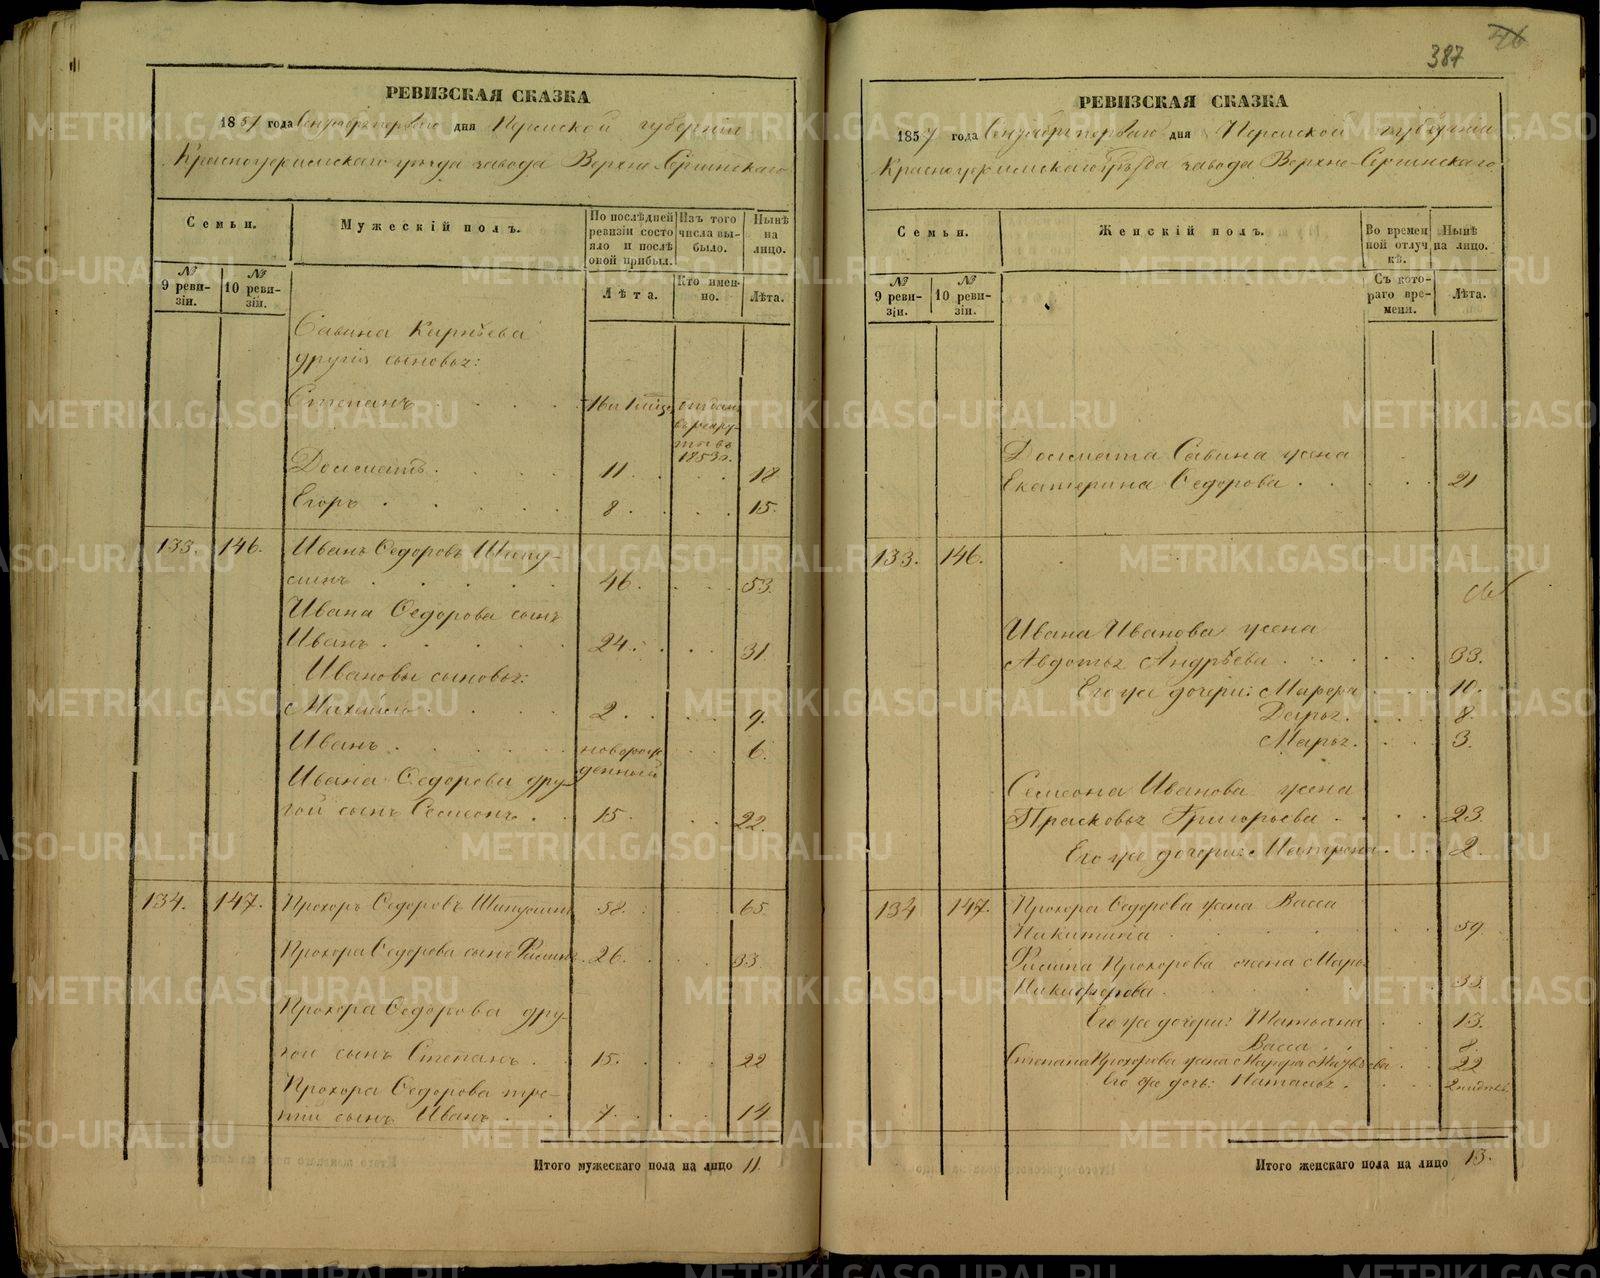 РЕВИЗСКАЯ СКАЗКА
1857 года Сентября первого дня Пермской губернии
Красноуфимскаго уезда завода Верхне-Сергинскаго
Семьи.
Мужескій полъ.
По послѣдней ревизіи состояло и послѣ оной прибыл.
Изъ того числа выбыло.
Нынѣ на лицо.
№ 9 ревизіи.
№ 10 ревизіи.
Лѣта.
Кто именно.
Лѣта.
Савина Карпѣева
другія сыновья:
Степанъ 16 отданъ въ рекруты въ 1853 г.
Долматъ 11 18
Егоръ 8 15.
133. 146. Иванъ Ѳедоровъ
46. 53.
Ивана Ѳедорова сынъ
Иванъ 24. 31
Ивановы сыновья:
Михайло 2 9.
Иванъ новорожденный 6.
Ивана Ѳедорова дру-
гой сынъ Семеонъ 15. 22.
134. 147. Прохоръ Ѳедоровъ 58. 65
Прохора Ѳедорова сынъ Филипъ 26. 33
Прохора Ѳедорова дру-
гой сынъ Степанъ 15. 22
Прохора Ѳедорова тре-
тій сынъ Иванъ 7. 14
Итого мужескаго пола на лицо 11.
387
46
РЕВИЗСКАЯ СКАЗКА
1857 года Сентября первого дня Пермской губерніи
Красноуфимскаго уѣзда завода Верхне-Сергинскаго
Семьи.
Женскій полъ.
Во временной отлучкѣ.
Нынѣ на лицо.
№ 9 ревизіи.
№ 10 ревизіи.
Съ котораго времени.
Лѣта.
Долмата Савина жена
Екатерина Ѳедорова 21
133. 146.
Ивана Иванова жена
Авдотья Андрѣева 33.
Его же дочери: Марфа 10.
Дарья 8.
Марья 3.
Семеона Иванова жена
Прасковья Григорьева 23.
Его же дочери: Матрена 2.
134 147. Прохора Ѳедорова жена Васса
Никитина 59.
Филипа Прохорова жена Марья
Никифорова 33.
Его же дочери: Татьяна 13.
Васса 8.
Степана Прохорова жена Марфа Матвѣева 22
Его же дочь: Наталья 2 недѣль
Итого женскаго пола на лицо 13.
METRIKI.GASO-URAL.RU